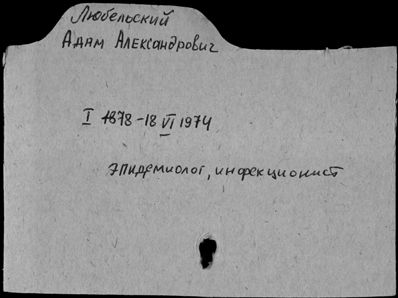 Любельский
Адам Александрович
I 1878-18 VI 1974
эпидемиолог, инфекционист